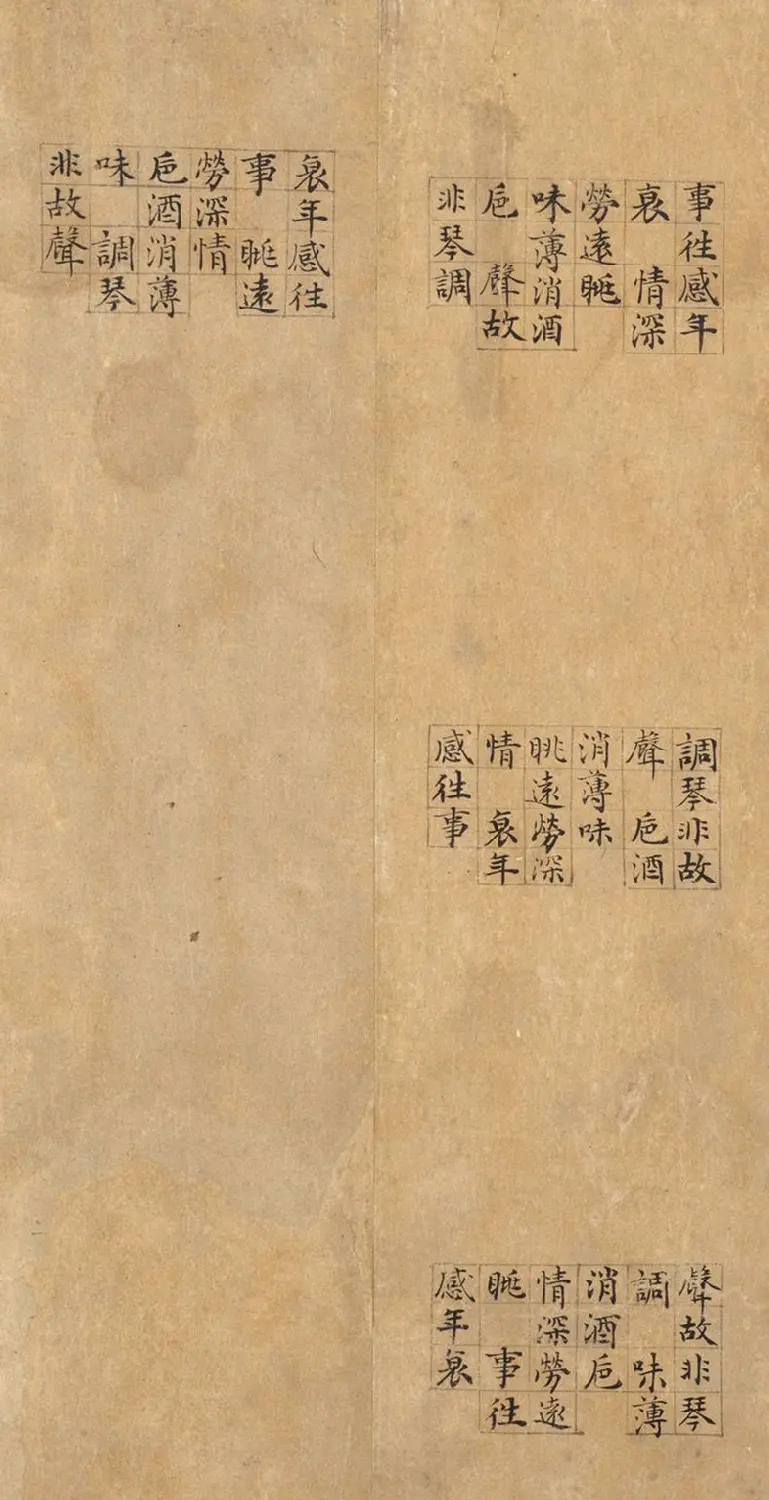 事徃感年
衰 情深
勞遠眺
味薄消酒
巵 聲故
非琴調
調琴非故
聲 巵酒
消薄味
眺遠勞深
情 衰年
感徃事
聲故非琴
調 味薄
消酒巵
情深勞遠
眺 事徃
感年衰
衰年感徃
事 眺遠
勞深情
巵酒消薄
味 調琴
非故聲